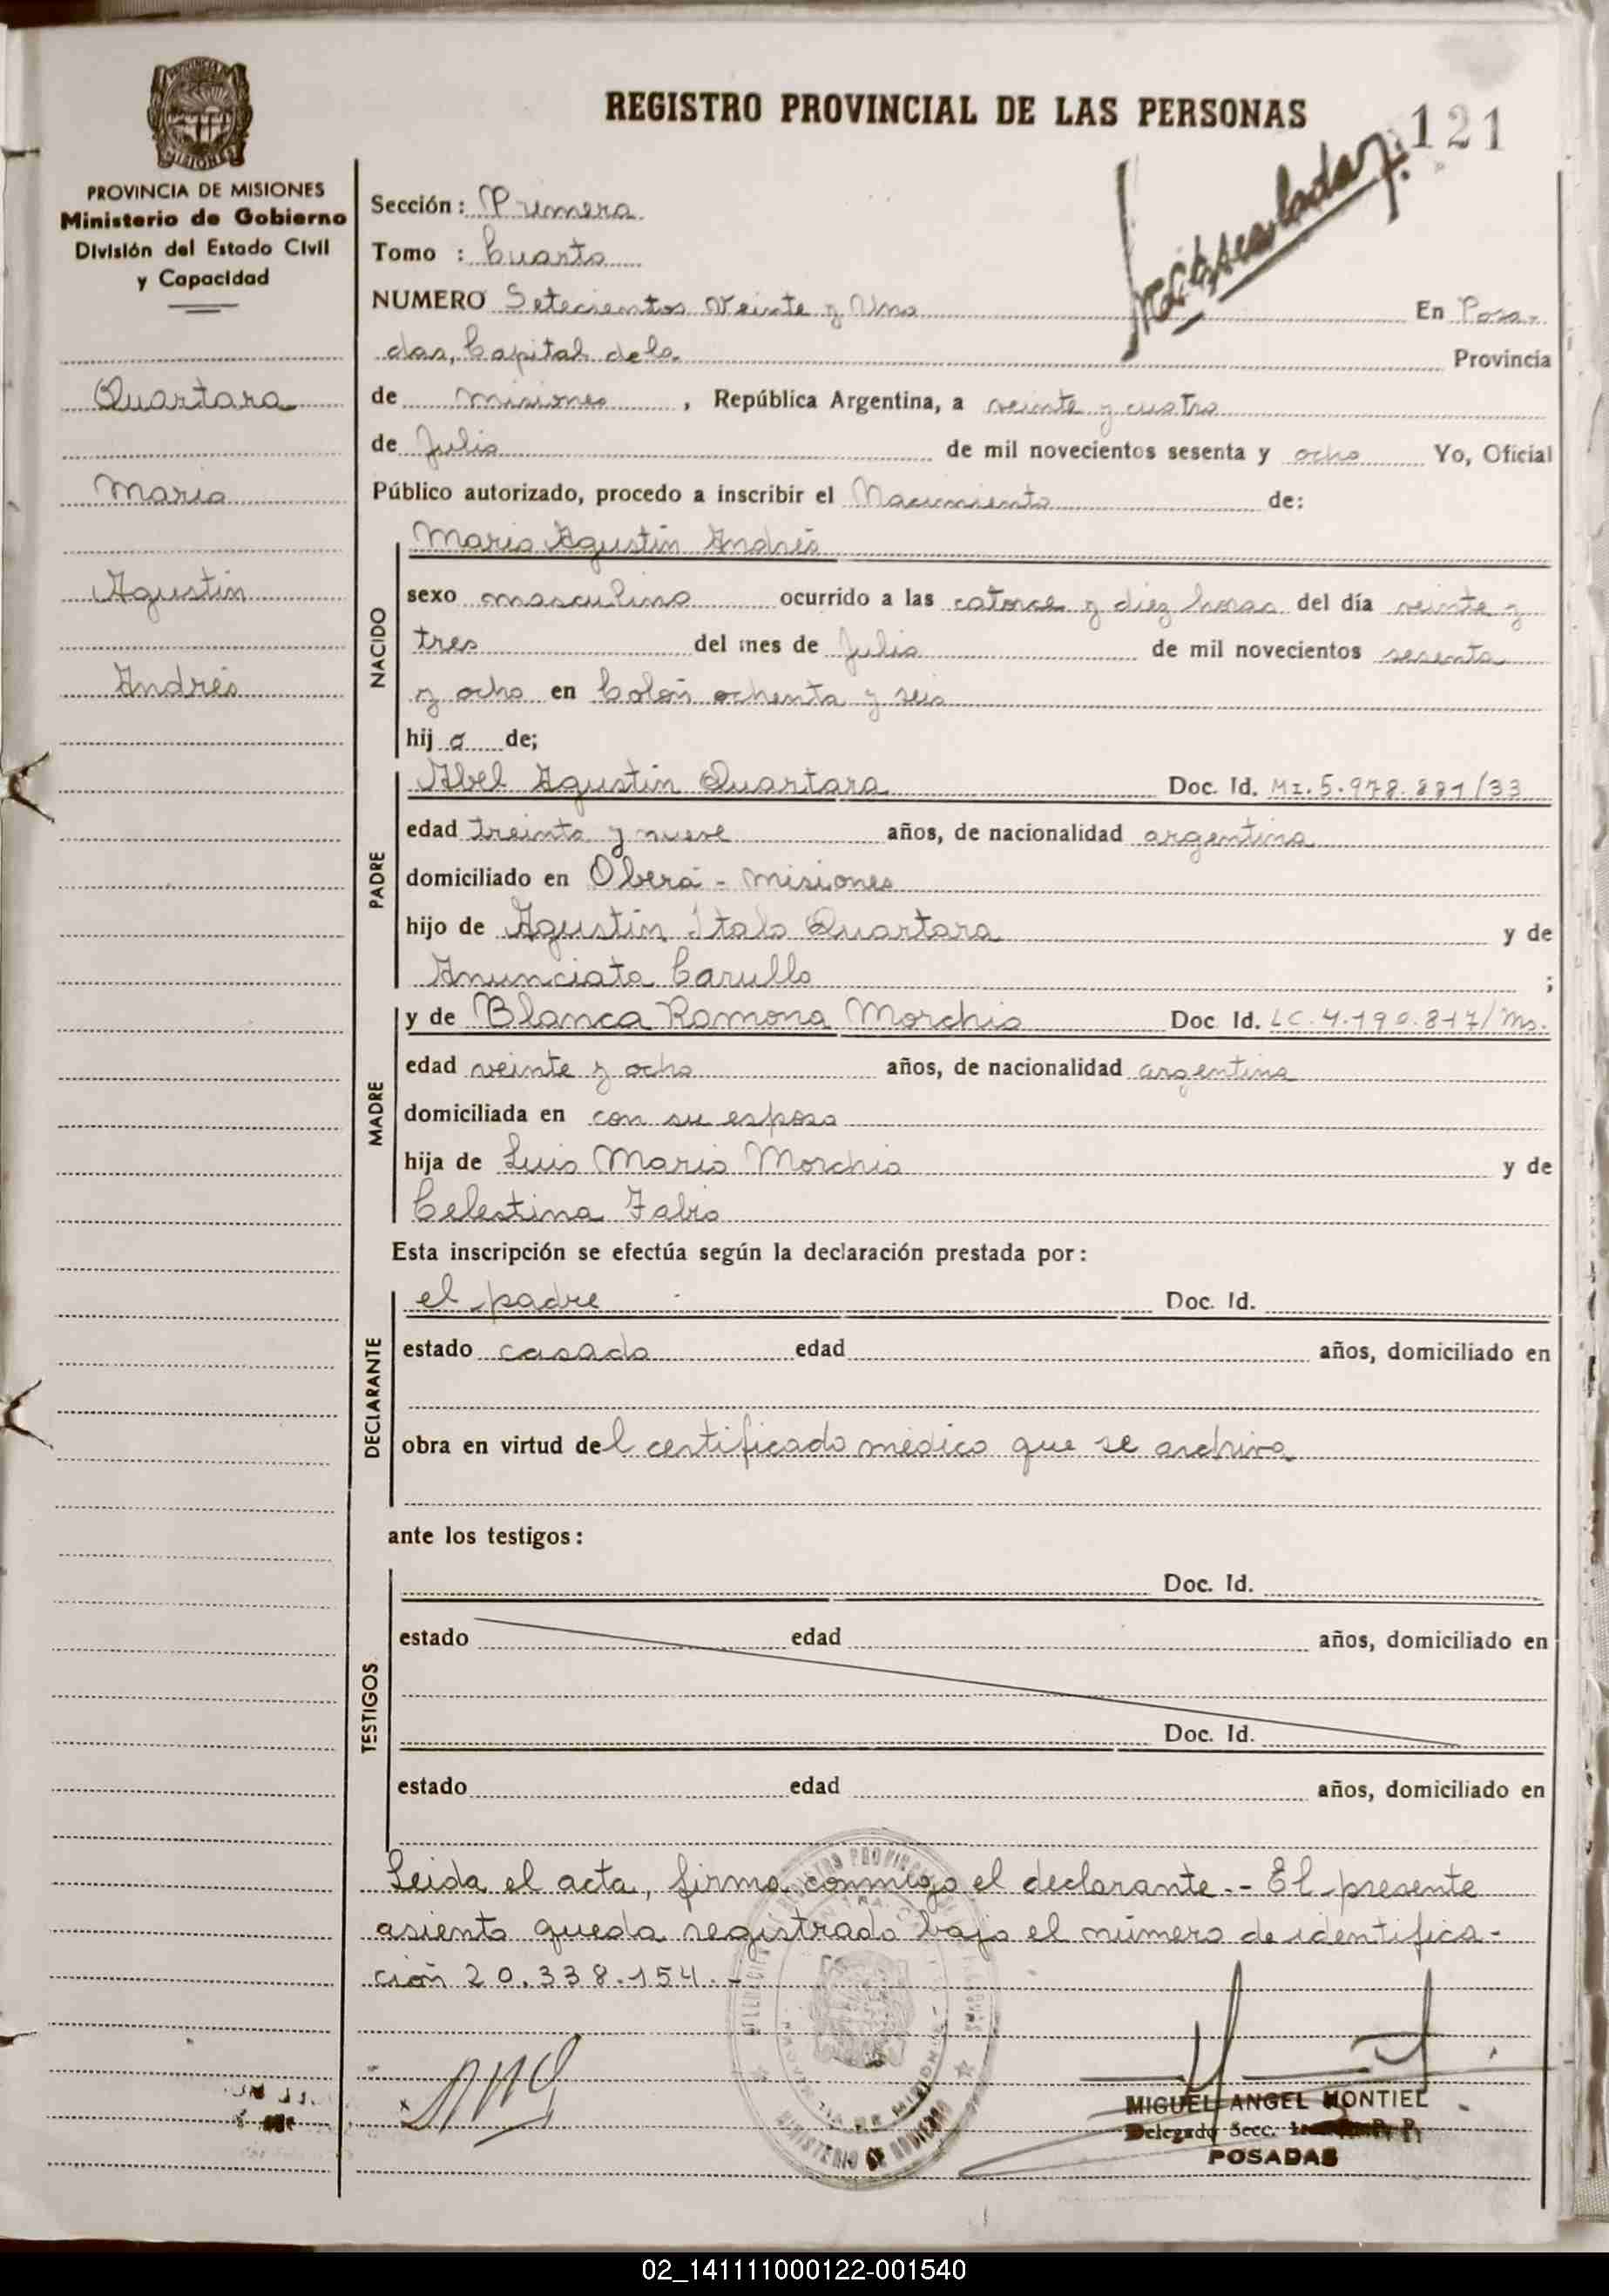 REGISTRO PROVINCIAL DE LAS PERSONAS
121
PROVINCIA DE MISIONES
Ministerio de Gobierno
División del Estado Civil
y Capacidad
Quartara
Mario
Agustín
Andrés
Sección: Primera
Tomo : Cuarto
NUMERO Setecientos Veinte y Uno En Posa-
das, Capital de la Provincia
de Misiones, República Argentina, a veinte y cuatro
de Julio de mil novecientos sesenta y ocho Yo, Oficial
Público autorizado, procedo a inscribir el Nacimiento de:
NACIDO
Mario Agustín Andrés
sexo masculino ocurrido a las catorce y diez horas del día veinte y
tres del mes de Julio de mil novecientos sesenta
y ocho en Colón ochenta y seis
hijo de;
PADRE
Abel Agustín Quartara Doc. Id. MI. 5.978.881/33
edad treinta y nueve años, de nacionalidad argentina
domiciliado en Oberá - Misiones
hijo de Agustín Italo Quartara y de
Anunciata Carullo ;
MADRE
y de Blanca Ramona Morchio Doc. Id. LC. 4.190.817/Ms.
edad veinte y ocho años, de nacionalidad argentina
domiciliada en con su esposo
hija de Luis Mario Morchio y de
Celestina Fabio
Esta inscripción se efectúa según la declaración prestada por:
DECLARANTE
el padre Doc. Id.
estado casado edad años, domiciliado en
obra en virtud del certificado médico que se archiva
ante los testigos:
TESTIGOS
Doc. Id.
estado edad años, domiciliado en
Doc. Id.
estado edad años, domiciliado en
Leida el acta, firma conmigo el declarante.- El presente
asiento queda registrado bajo el número de identifica-
ción 20.338.154.-
MIGUEL ANGEL MONTIEL
Delegado Secc.
POSADAS
02_141111000122-001540